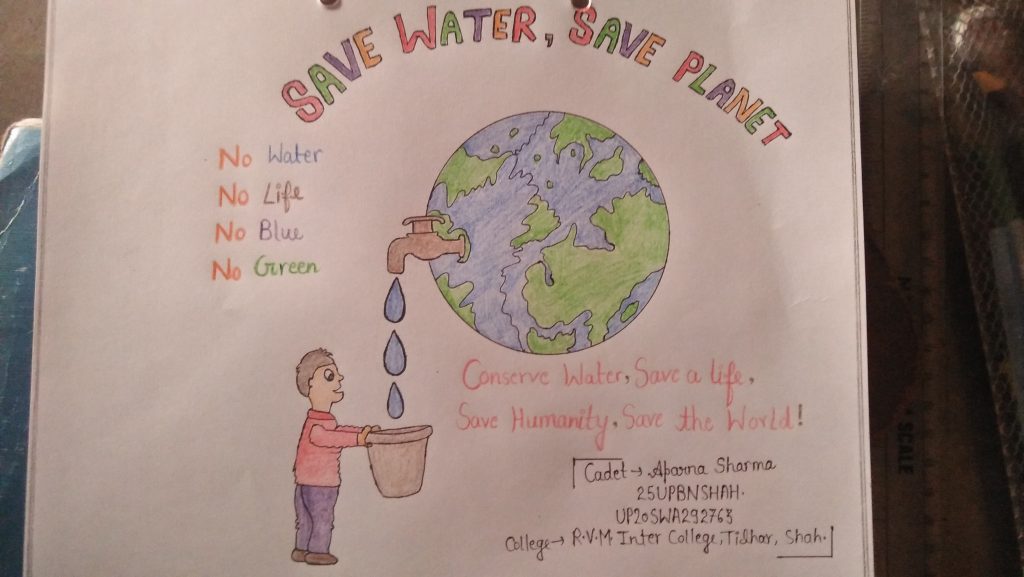 SAVE WATER, SAVE PLANET
No Water
No Life
No Blue
No Green
Conserve Water, Save a life,
Save Humanity, Save the World!
Cadet → Aparna Sharma
25UPBNSHAH.
UP20SWA292763
College → R.V.M. Inter College, Tidhar, Shah.
SCALE